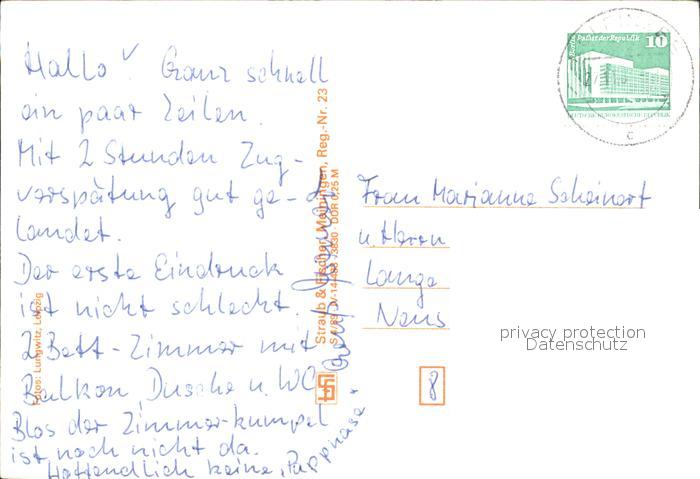 Hallo! Ganz schnell
ein paar Zeilen.
Mit 2 Stunden Zug-
verspätung gut ge-
landet.
Der erste Eindruck
ist nicht schlecht.
2 Bett-Zimmer mit
Balkon, Dusche u. WC
Blos der Zimmerkumpel
ist noch nicht da.
Hoffendlich keine „Pappnase“.
Fotos: Lungwitz, Leipzig
Straub & Fischer, Meiningen, Reg.-Nr. 23
DDR 0,25 M
Berlin Palast der Republik
10
DEUTSCHE DEMOKRATISCHE REPUBLIK
c
Frau Marianne Scheinert
u. Herrn
Lange
Neus
8
privacy protection
Datenschutz